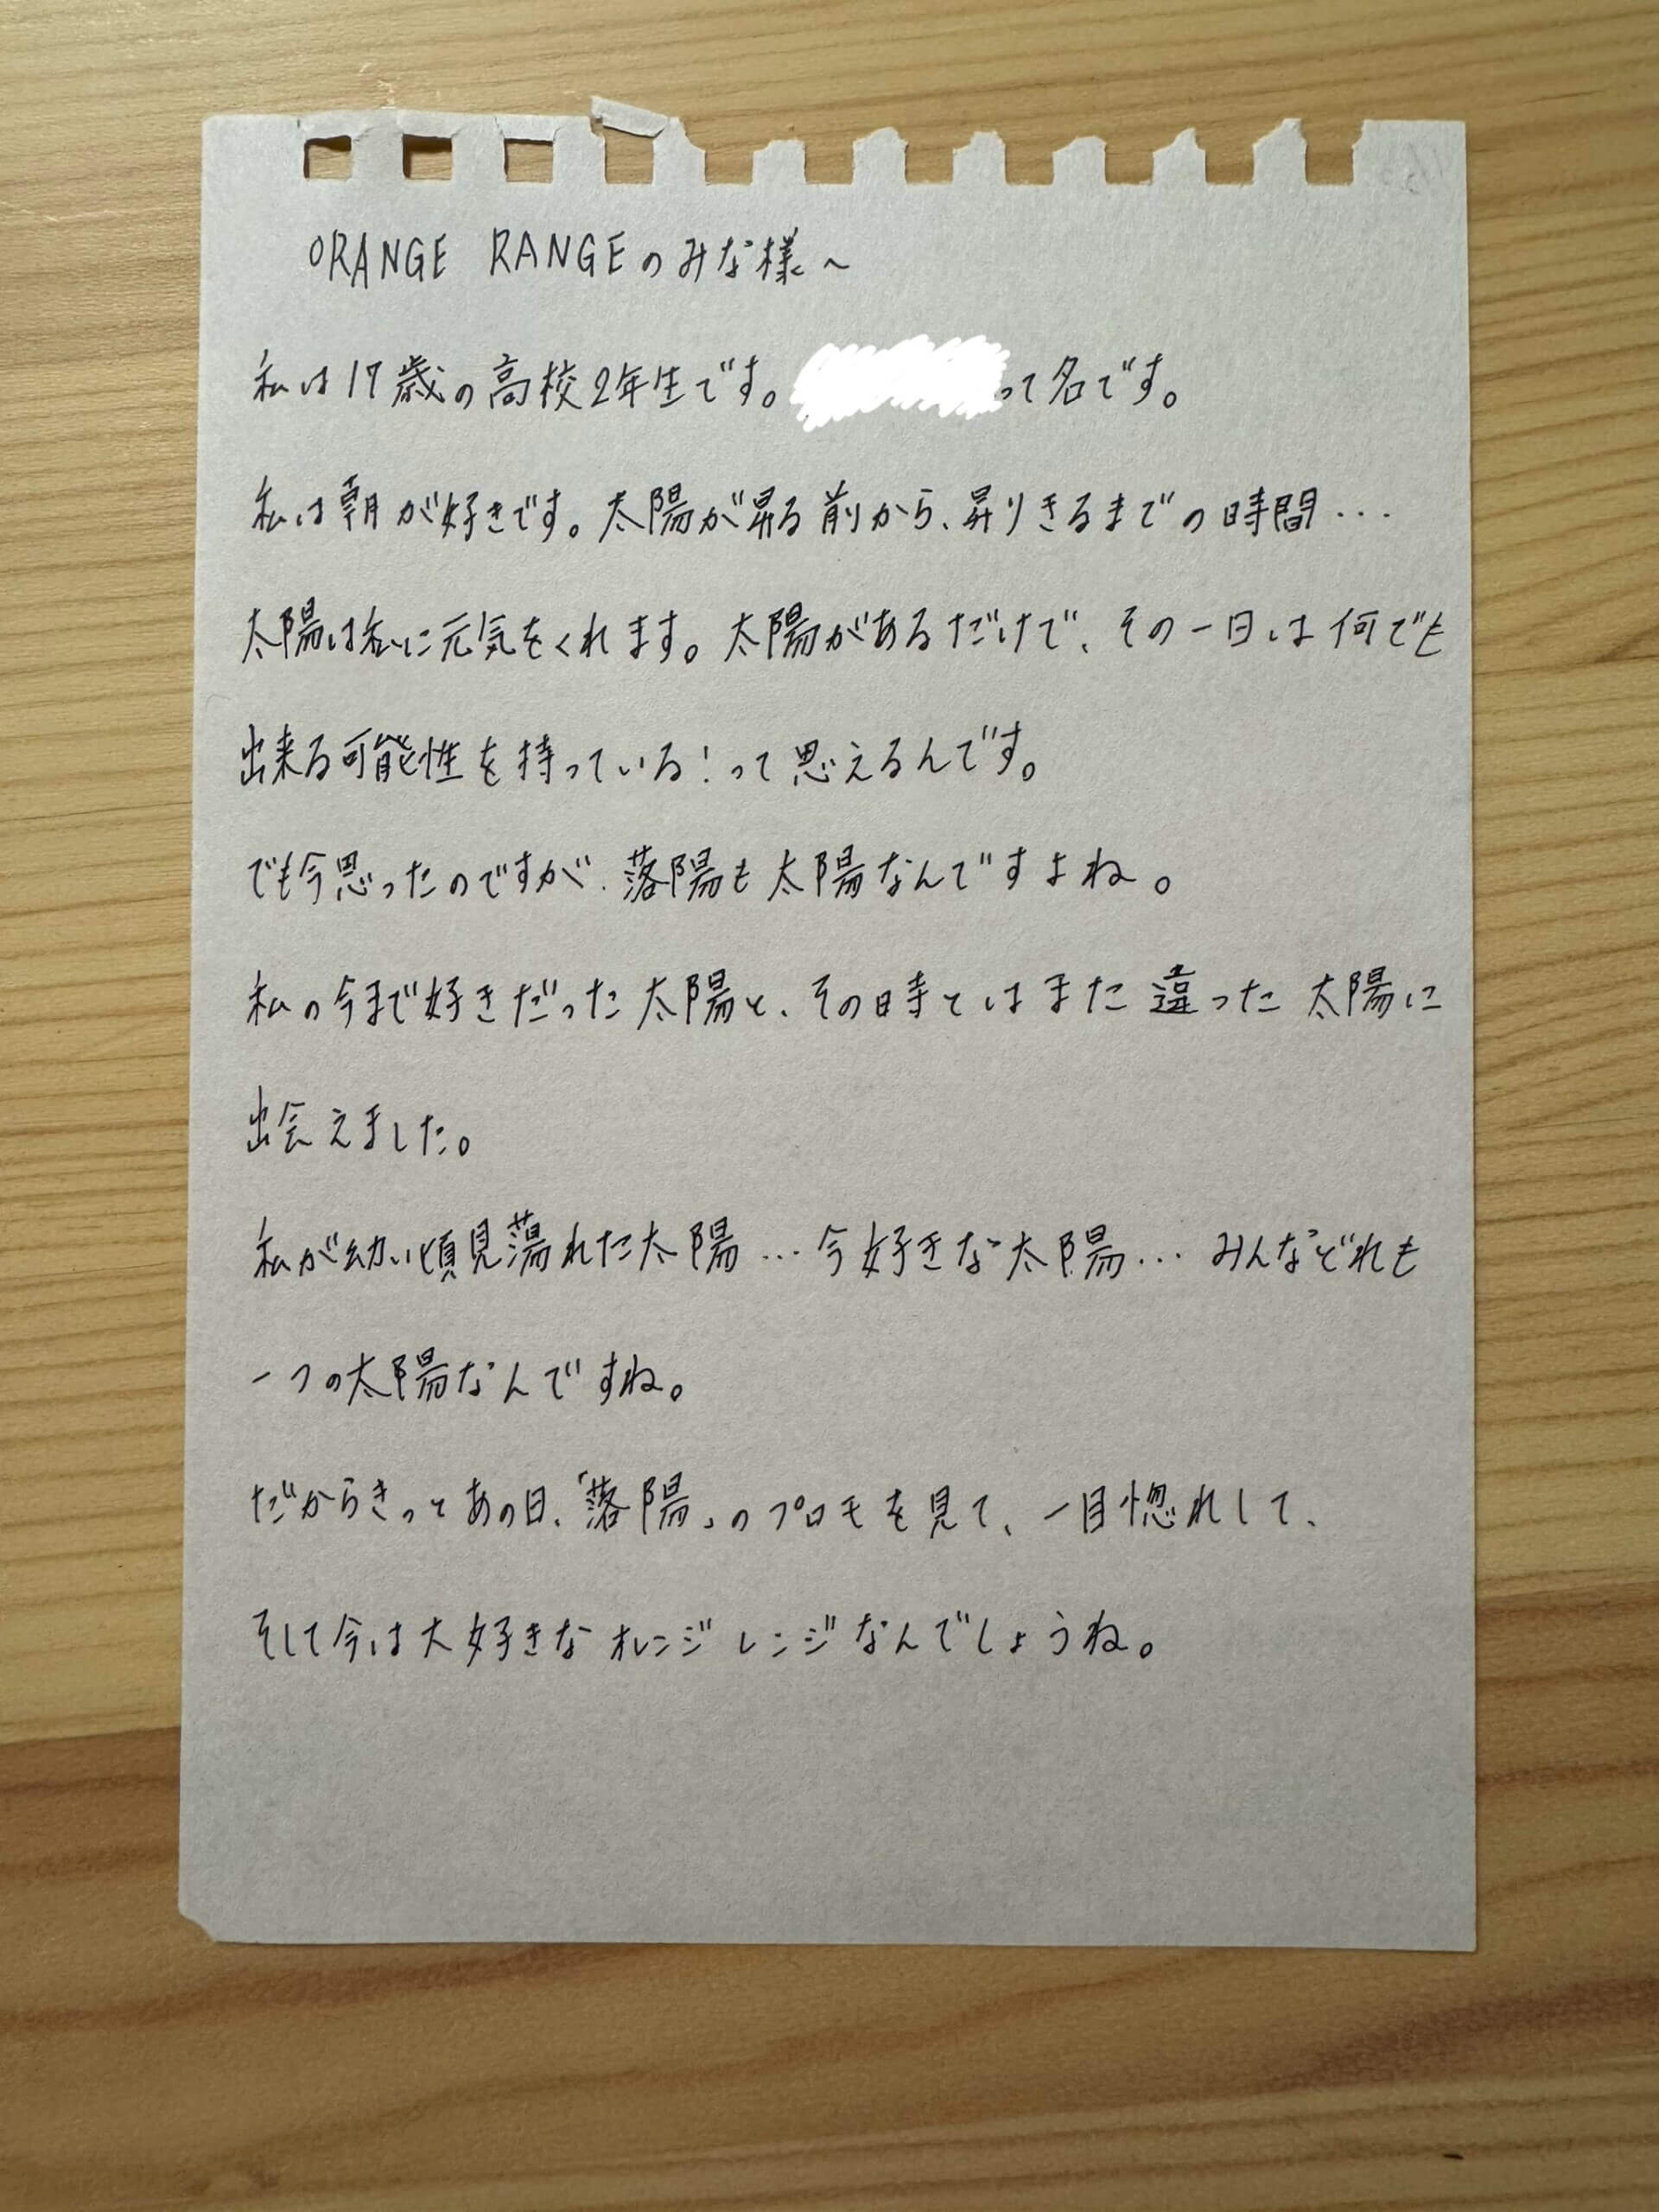 ORANGE RANGEのみな様へ
私は17歳の高校2年生です。って名です。
私は朝が好きです。太陽が昇る前から、昇りきるまでの時間…
太陽は私に元気をくれます。太陽があるだけで、その一日は何でも
出来る可能性を持っている!って思えるんです。
でも今思ったのですが、落陽も太陽なんですよね。
私の今まで好きだった太陽と、その時とはまた違った太陽に
出会えました。
私が幼い頃見蕩れた太陽…今好きな太陽…みんなどれも
一つの太陽なんですね。
だからきっとあの日、「落陽」のプロモを見て、一目惚れして、
そして今は大好きなオレンジレンジなんでしょうね。